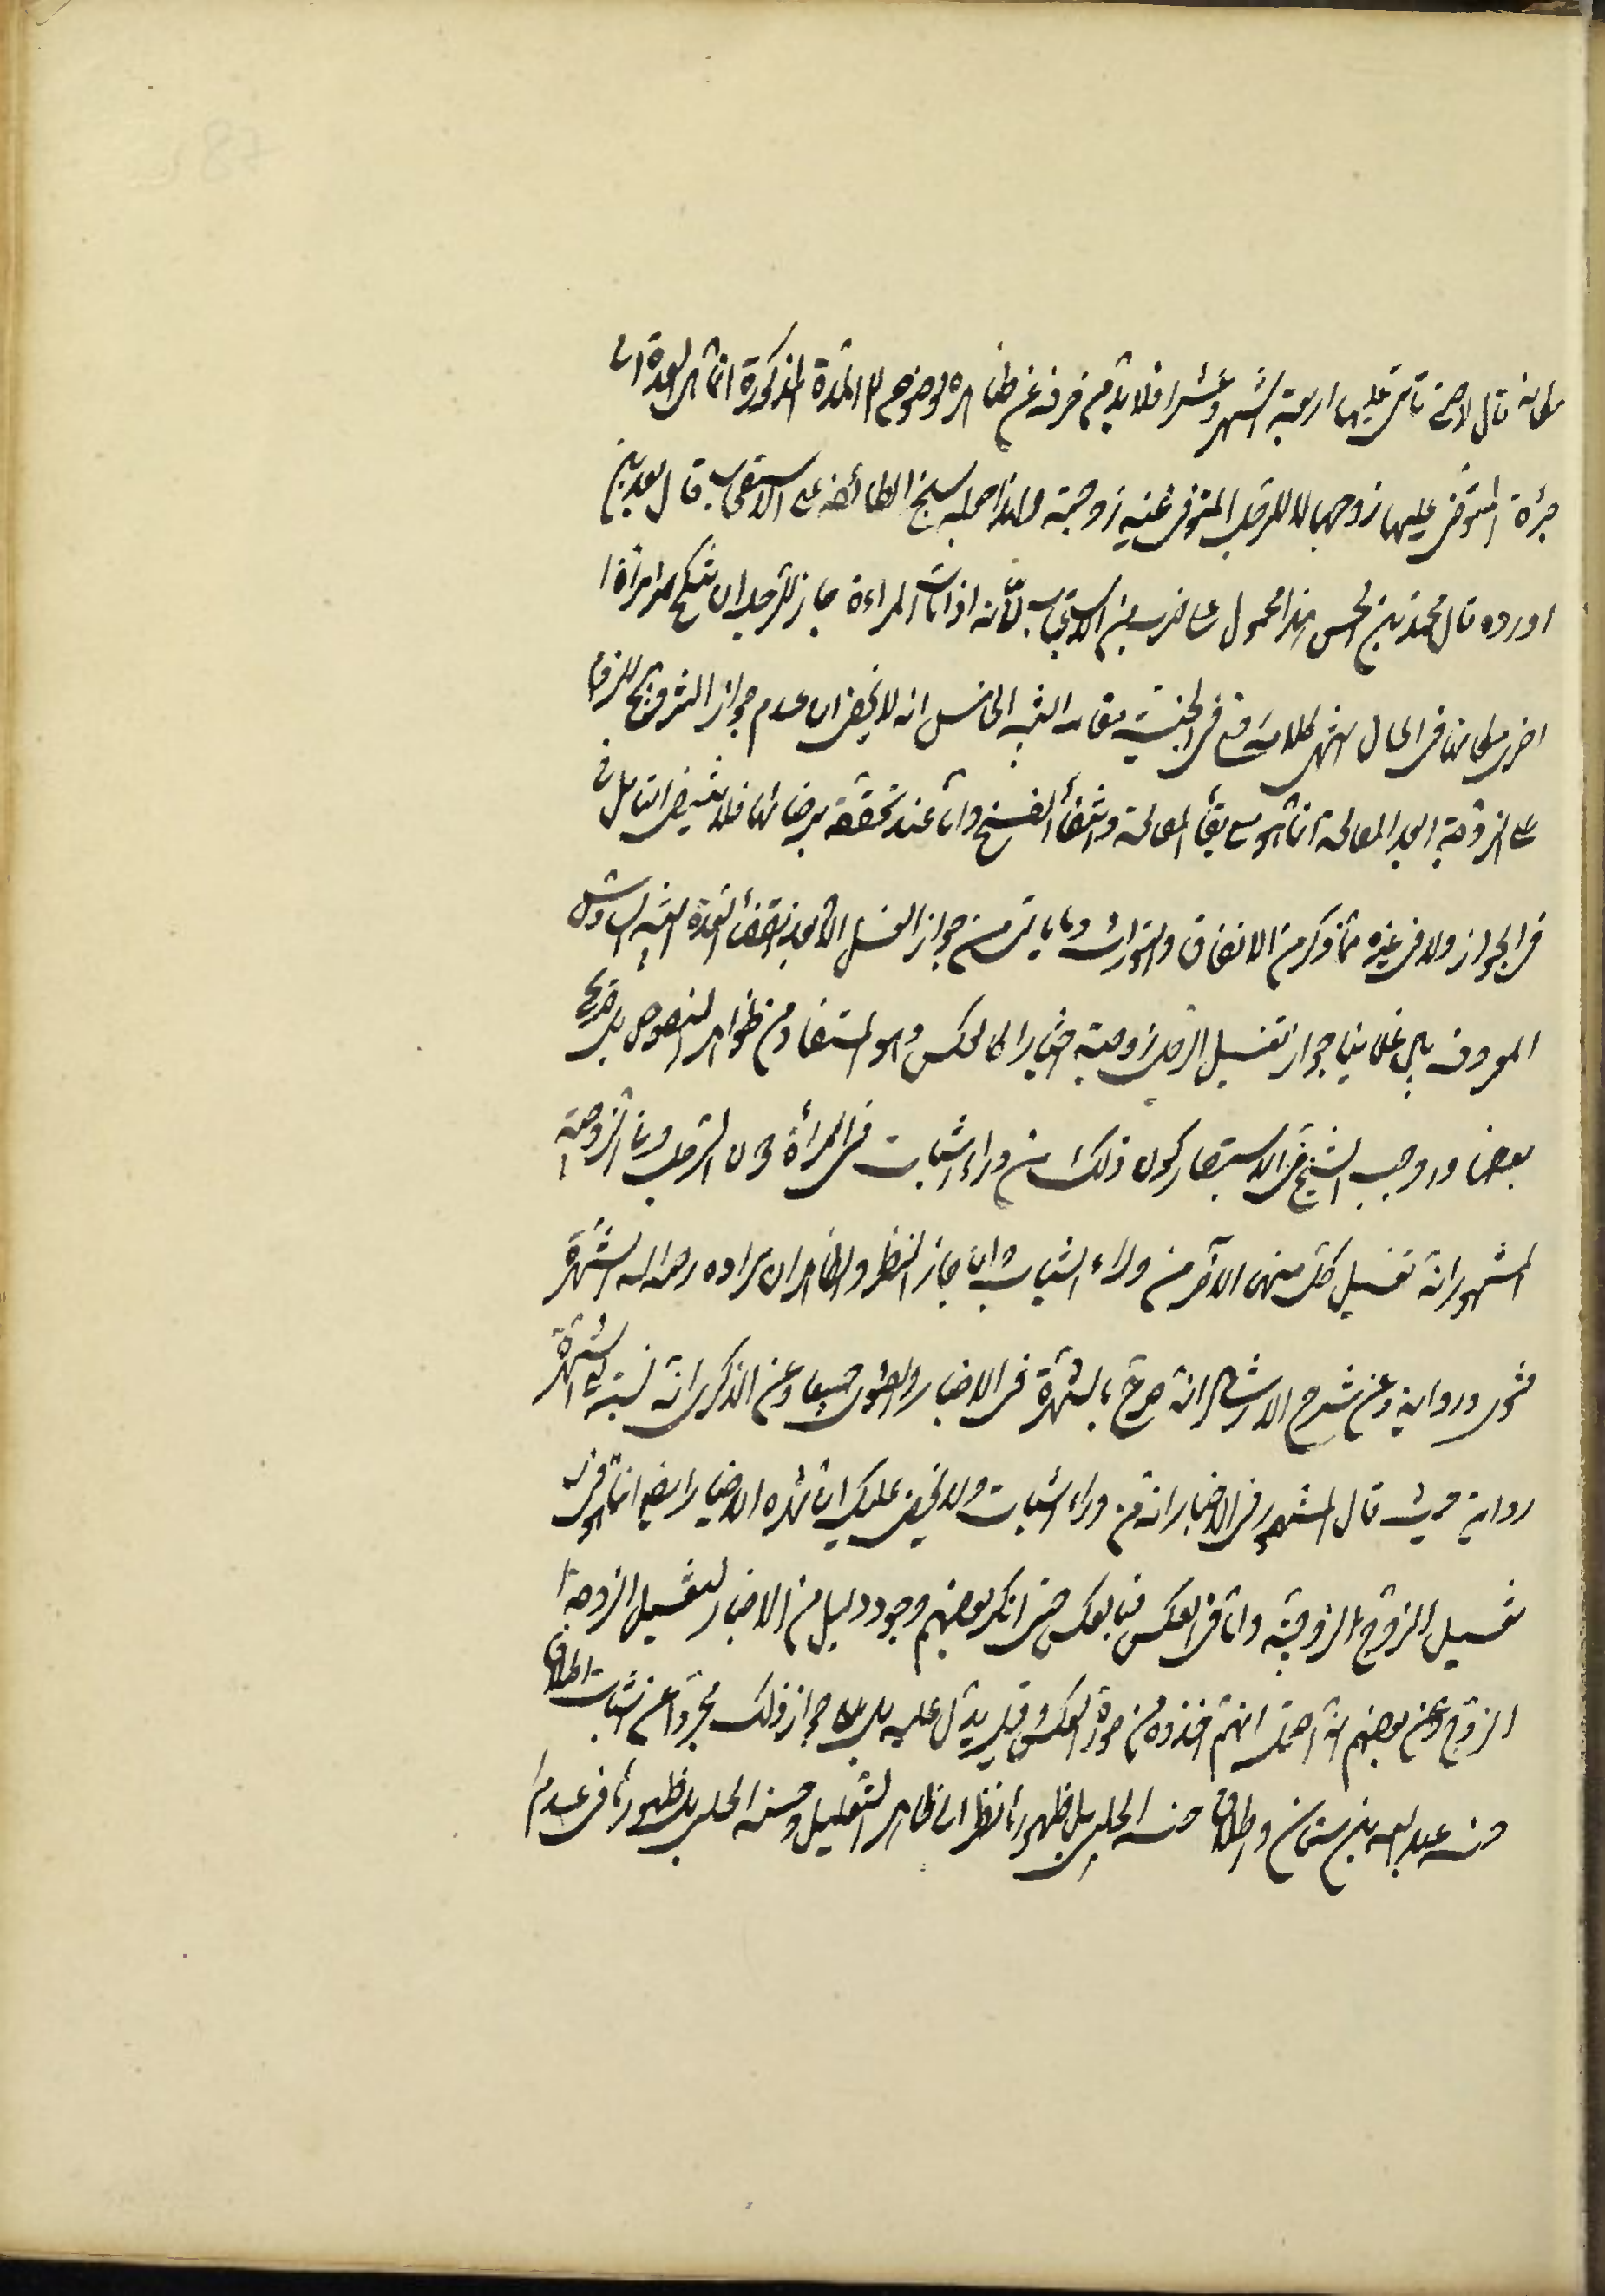 مكانه قال لا حتى تأتى عليها اربعة اشهر وعشرا فلا بد من صرفه عن ظاهره لوضوح ان المدة المذكورة انما هى لعدة
المرأة المتوفى عليها زوجها لا للرجل المتوفى عنه زوجته ولهذا حمله شيخ الطائفة على الاستحباب قال بعد ان
اورده قال محمد بن الحسن هذا محمول على ضرب من الاستحباب لانه اذا ماتت المراءة جاز للرجل ان ينكح امراة
اخرى مكانها فى الحال انتهى كلامه رفع فى الجنة مقامه التنبيه الخامس انه لا يخفى ان عدم جواز التزويج للزوج
على الزوجة بعد المعالجة انما هو مع بقاء المعالجة وانتفاء الفسخ واما عند تحققه برضائهما فلا ينبغى التامل
فى الجواز ولا فى غيره مما ذكر من الانفاق والتوارث وما ياتى من جواز الغسل الا بعد انقضاء العدة التنبيه السادس
المعروف بين علمائنا جواز تغسيل الرجل زوجته اختيارا كالعكس وهو المستفاد من ظواهر النصوص بل صريح
بعضها واوجب الشيخ فى الاستبصار كون ذلك من وراء الثياب فى المرأة دون الرجل وفى الروضة
المشهور انه تغسيل كل منهما الآخر من وراء الثياب وان جاز النظر والظاهر ان مراده رحمه الله الشهرة
فتوى ورواية وعن شرح الارشاد انه صرح بالشهرة فى الاخبار والفتوى جميعا وعن الذكرى انه نسبه الى الشهرة
رواية حيث قال المشهور فى الاخبار انه من وراء الثياب ولا يخفى عليك ان هذه الاخبار ايضا انما هو فى
تغسيل الزوج الزوجة واما فى العكس فبالعكس حتى انكر بعضهم وجود دليل من الاخبار لتغسيل الزوجة
الزوج وعن بعضهم انه احتمل انهم اخذوه من صورة العكس وقيل يدل عليه بل على جواز ذلك مجردا عن الثياب اطلاق
حسنة عبد الله بن سنان واطلاق حسنة الحلبى بل ظهورها نظرا الى ظاهر التعليل وحسنة الحلبى بل ظهورها فى عدم